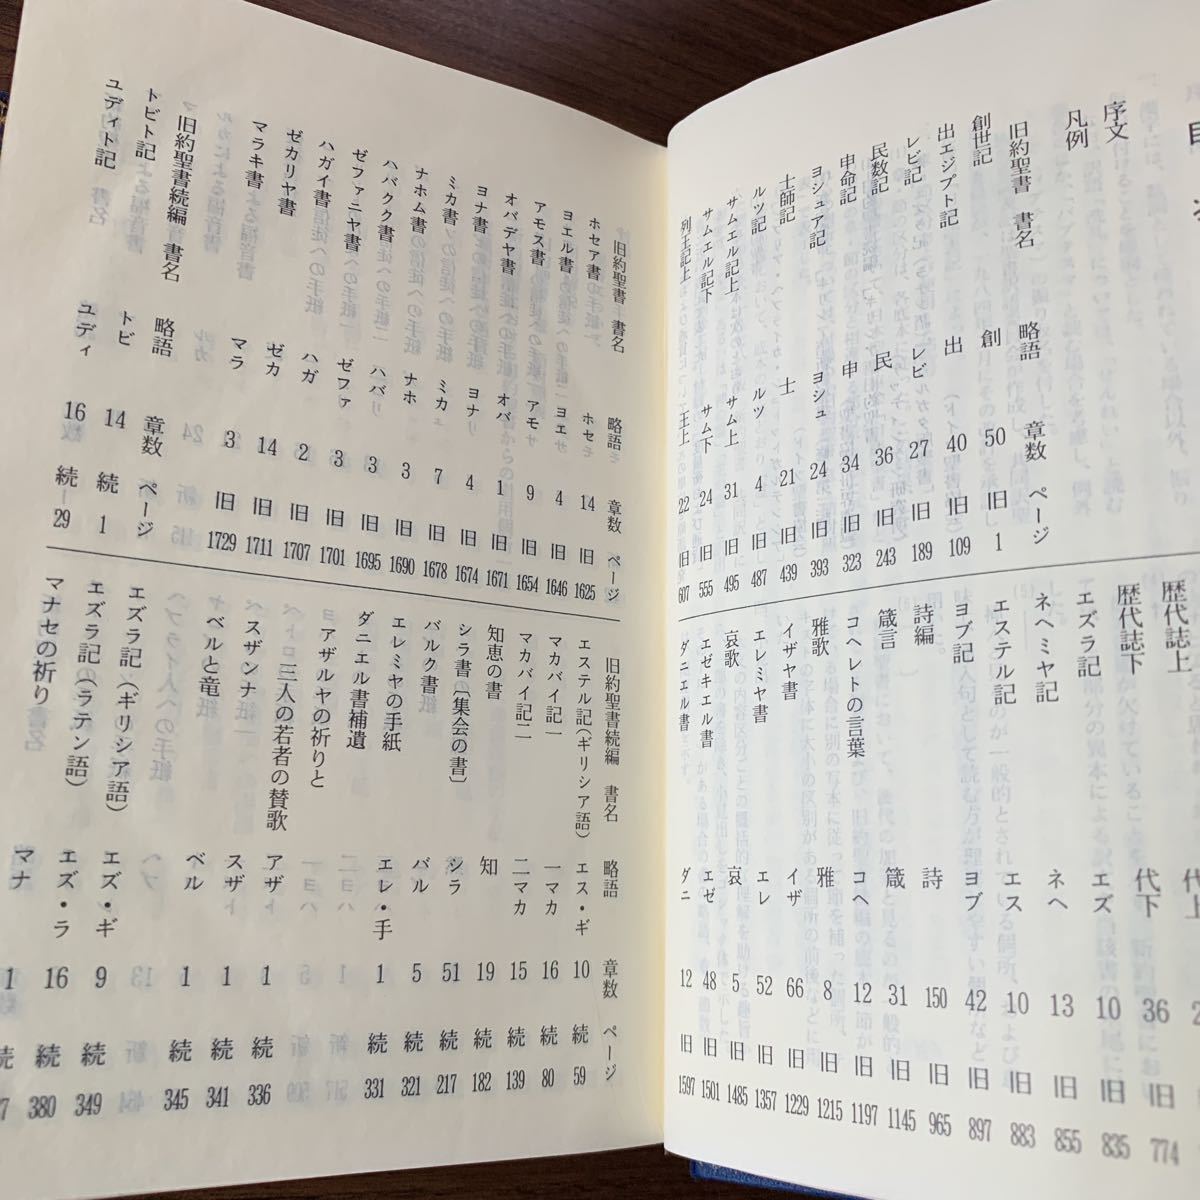 目次
序文
凡例
旧約聖書 書名 略語 章数 ページ
創世記 創 50 旧 1
出エジプト記 出 40 旧 109
レビ記 レビ 27 旧 189
民数記 民 36 旧 243
申命記 申 34 旧 323
ヨシュア記 ヨシュ 24 旧 393
士師記 士 21 旧 439
ルツ記 ルツ 4 旧 487
サムエル記上 サム上 31 旧 495
サムエル記下 サム下 24 旧 555
列王記上 王上 22 旧 607
歴代誌上 代上
歴代誌下 代下 36 旧 774
エズラ記 エズ 10 旧 835
ネヘミヤ記 ネヘ 13 旧 855
エステル記 エス 10 旧 883
ヨブ記 ヨブ 42 旧 897
詩編 詩 150 旧 965
箴言 箴 31 旧 1145
コヘレトの言葉 コヘ 12 旧 1197
雅歌 雅 8 旧 1215
イザヤ書 イザ 66 旧 1229
エレミヤ書 エレ 52 旧 1357
哀歌 哀 5 旧 1485
エゼキエル書 エゼ 48 旧 1501
ダニエル書 ダニ 12 旧 1597
旧約聖書 書名 略語 章数 ページ
ホセア書 ホセ 14 旧 1625
ヨエル書 ヨエ 4 旧 1646
アモス書 アモ 9 旧 1654
オバデヤ書 オバ 1 旧 1671
ヨナ書 ヨナ 4 旧 1674
ミカ書 ミカ 7 旧 1678
ナホム書 ナホ 3 旧 1690
ハバクク書 ハバ 3 旧 1695
ゼファニヤ書 ゼファ 3 旧 1701
ハガイ書 ハガ 2 旧 1707
ゼカリヤ書 ゼカ 14 旧 1711
マラキ書 マラ 3 旧 1729
旧約聖書続編 書名 略語 章数 ページ
トビト記 トビ 14 続 1
ユディト記 ユディ 16 続 29
旧約聖書続編 書名 略語 章数 ページ
エステル記(ギリシア語) エス・ギ 10 続 59
マカバイ記一 一マカ 16 続 80
マカバイ記二 二マカ 15 続 139
知恵の書 知 19 続 182
シラ書〔集会の書〕 シラ 51 続 217
バルク書 バル 5 続 321
エレミヤの手紙 エレ・手 1 続 331
ダニエル書補遺
アザルヤの祈りと
三人の若者の賛歌 アザ 1 続 336
スザンナ スザ 1 続 341
ベルと竜 ベル 1 続 345
エズラ記(ギリシア語) エズ・ギ 9 続 349
エズラ記(ラテン語) エズ・ラ 16 続 380
マナセの祈り マナ 1 続